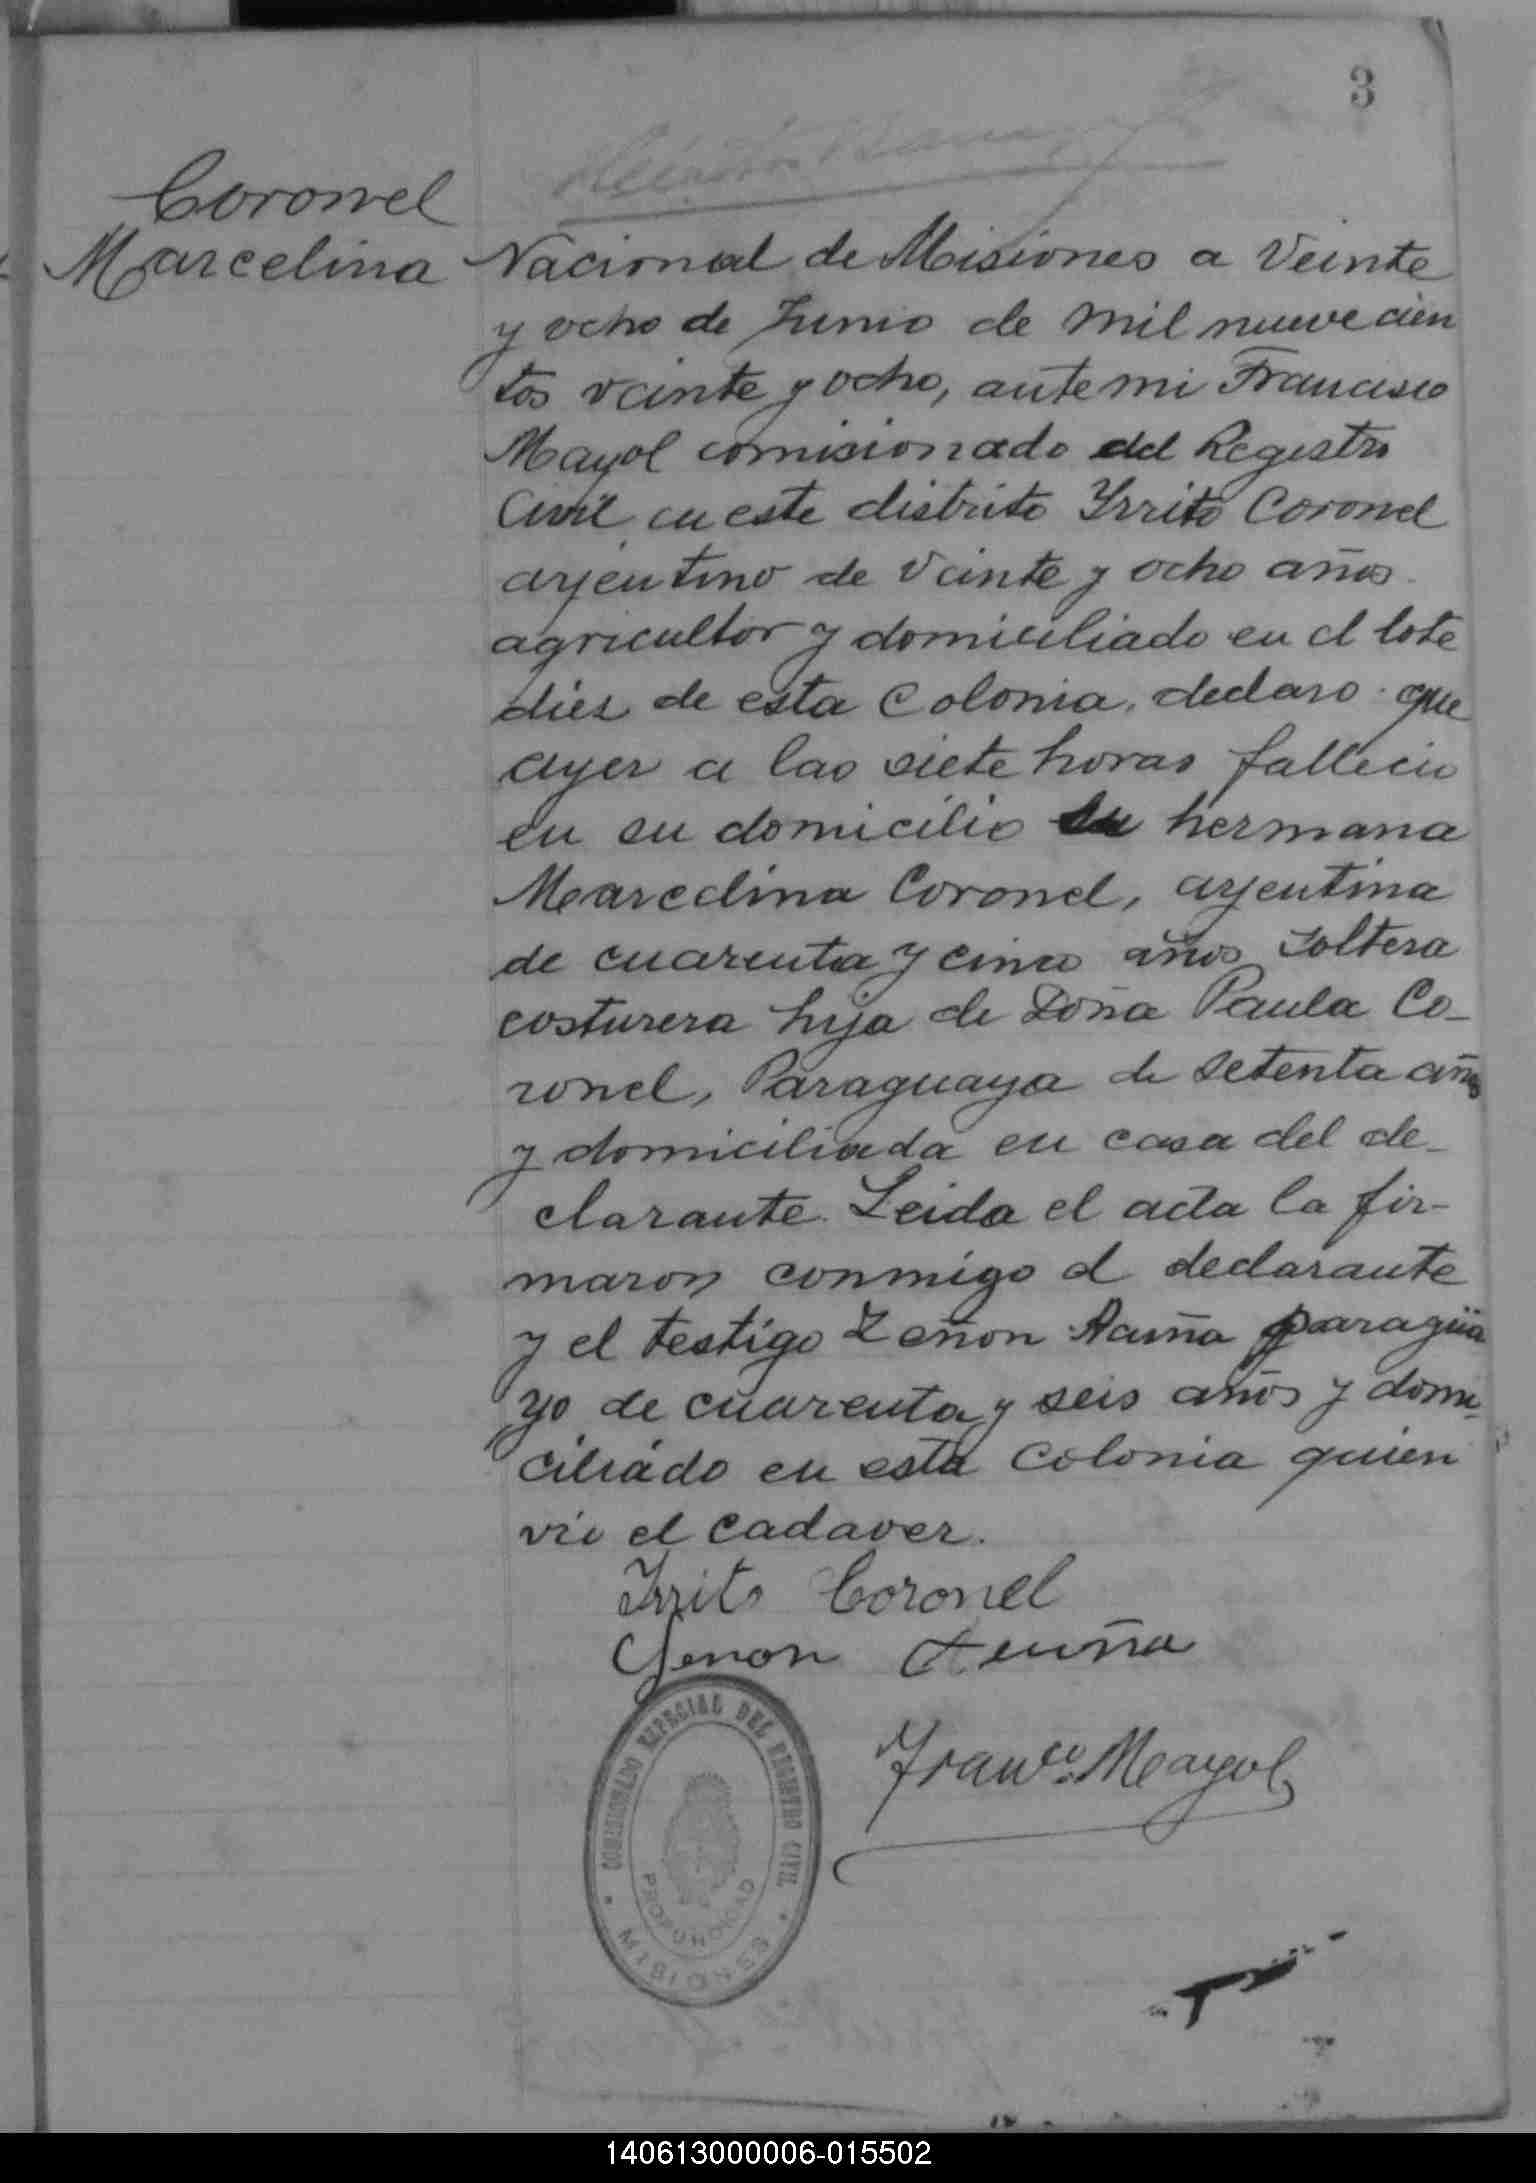 3
Coronel
Marcelina
Nacional de Misiones a Veinte
y ocho de Junio de mil nuevecien
tos veinte y ocho, ante mi Francisco
Mayol comisionado del Registro
Civil en este distrito Yrrito Coronel
arjentino de veinte y ocho años
agricultor y domiciliado en el lote
diez de esta Colonia, declaro que
ayer a las siete horas fallecio
en su domicilio su hermana
Marcelina Coronel, arjentina
de cuarenta y cinco años soltera
costurera hija de Doña Paula Co-
ronel, Paraguaya de setenta años
y domiciliada en casa del de-
clarante. Leida el acta la fir-
maron conmigo el declarante
y el testigo Zeñon Acuña paragüa
yo de cuarenta y seis años y domi-
ciliádo en esta Colonia quien
vio el cadaver.
Yrrito Coronel
Genon Acuña
Franco. Mayol
COMISIONADO ESPECIAL DEL REGISTRO CIVIL
PROFUNDIDAD
MISIONES
140613000006-015502